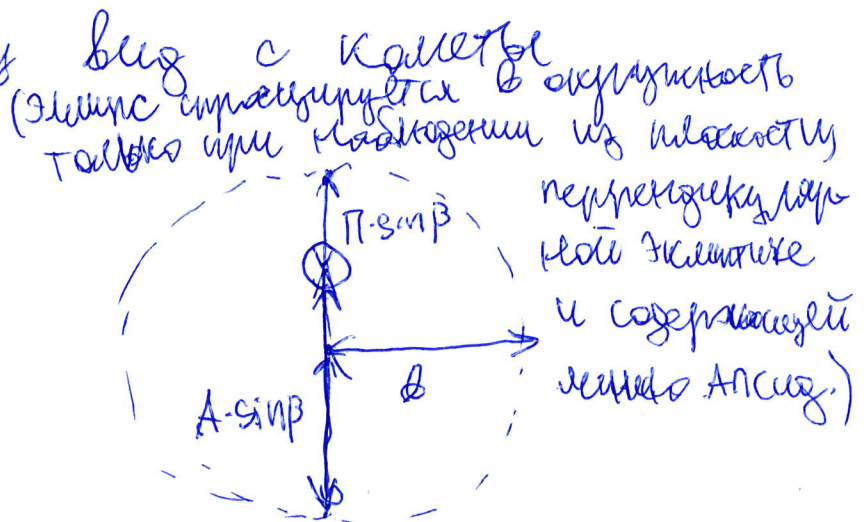 Вид с кометы
(Эллипс проецируется в окружность
только при наблюдении из плоскости
перпендикуляр-
ной эклиптике
и содержащей
линию Апсид.)
П·sinβ
b
A·sinβ